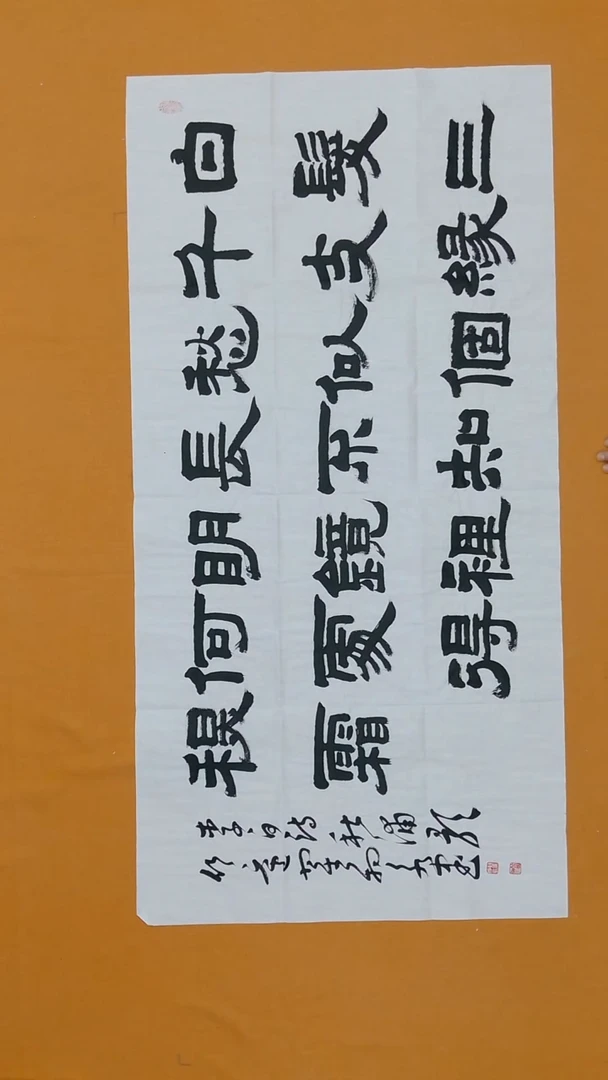 白髮三
千丈緣
愁似個
長不知
明鏡裡
何處得
秋霜
李白詩秋浦歌